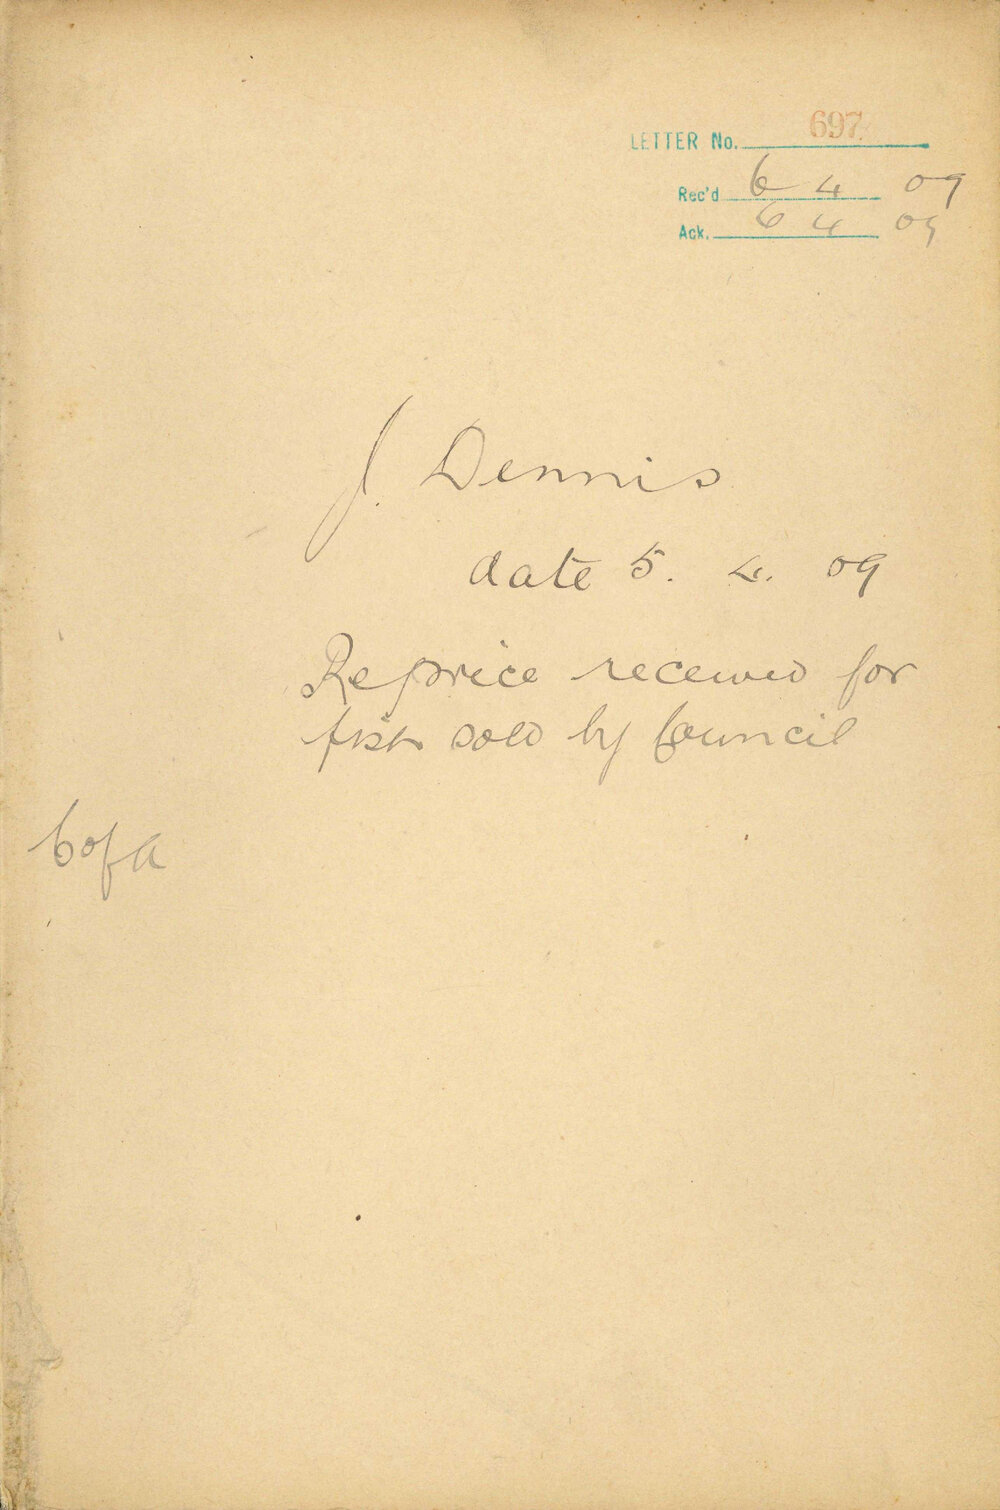 LETTER No. 697
Rec'd 6 4 09
Ack. 6 4 09
J. Dennis
date 5. 4. 09
Re price received for
fish sold by Council
C of A